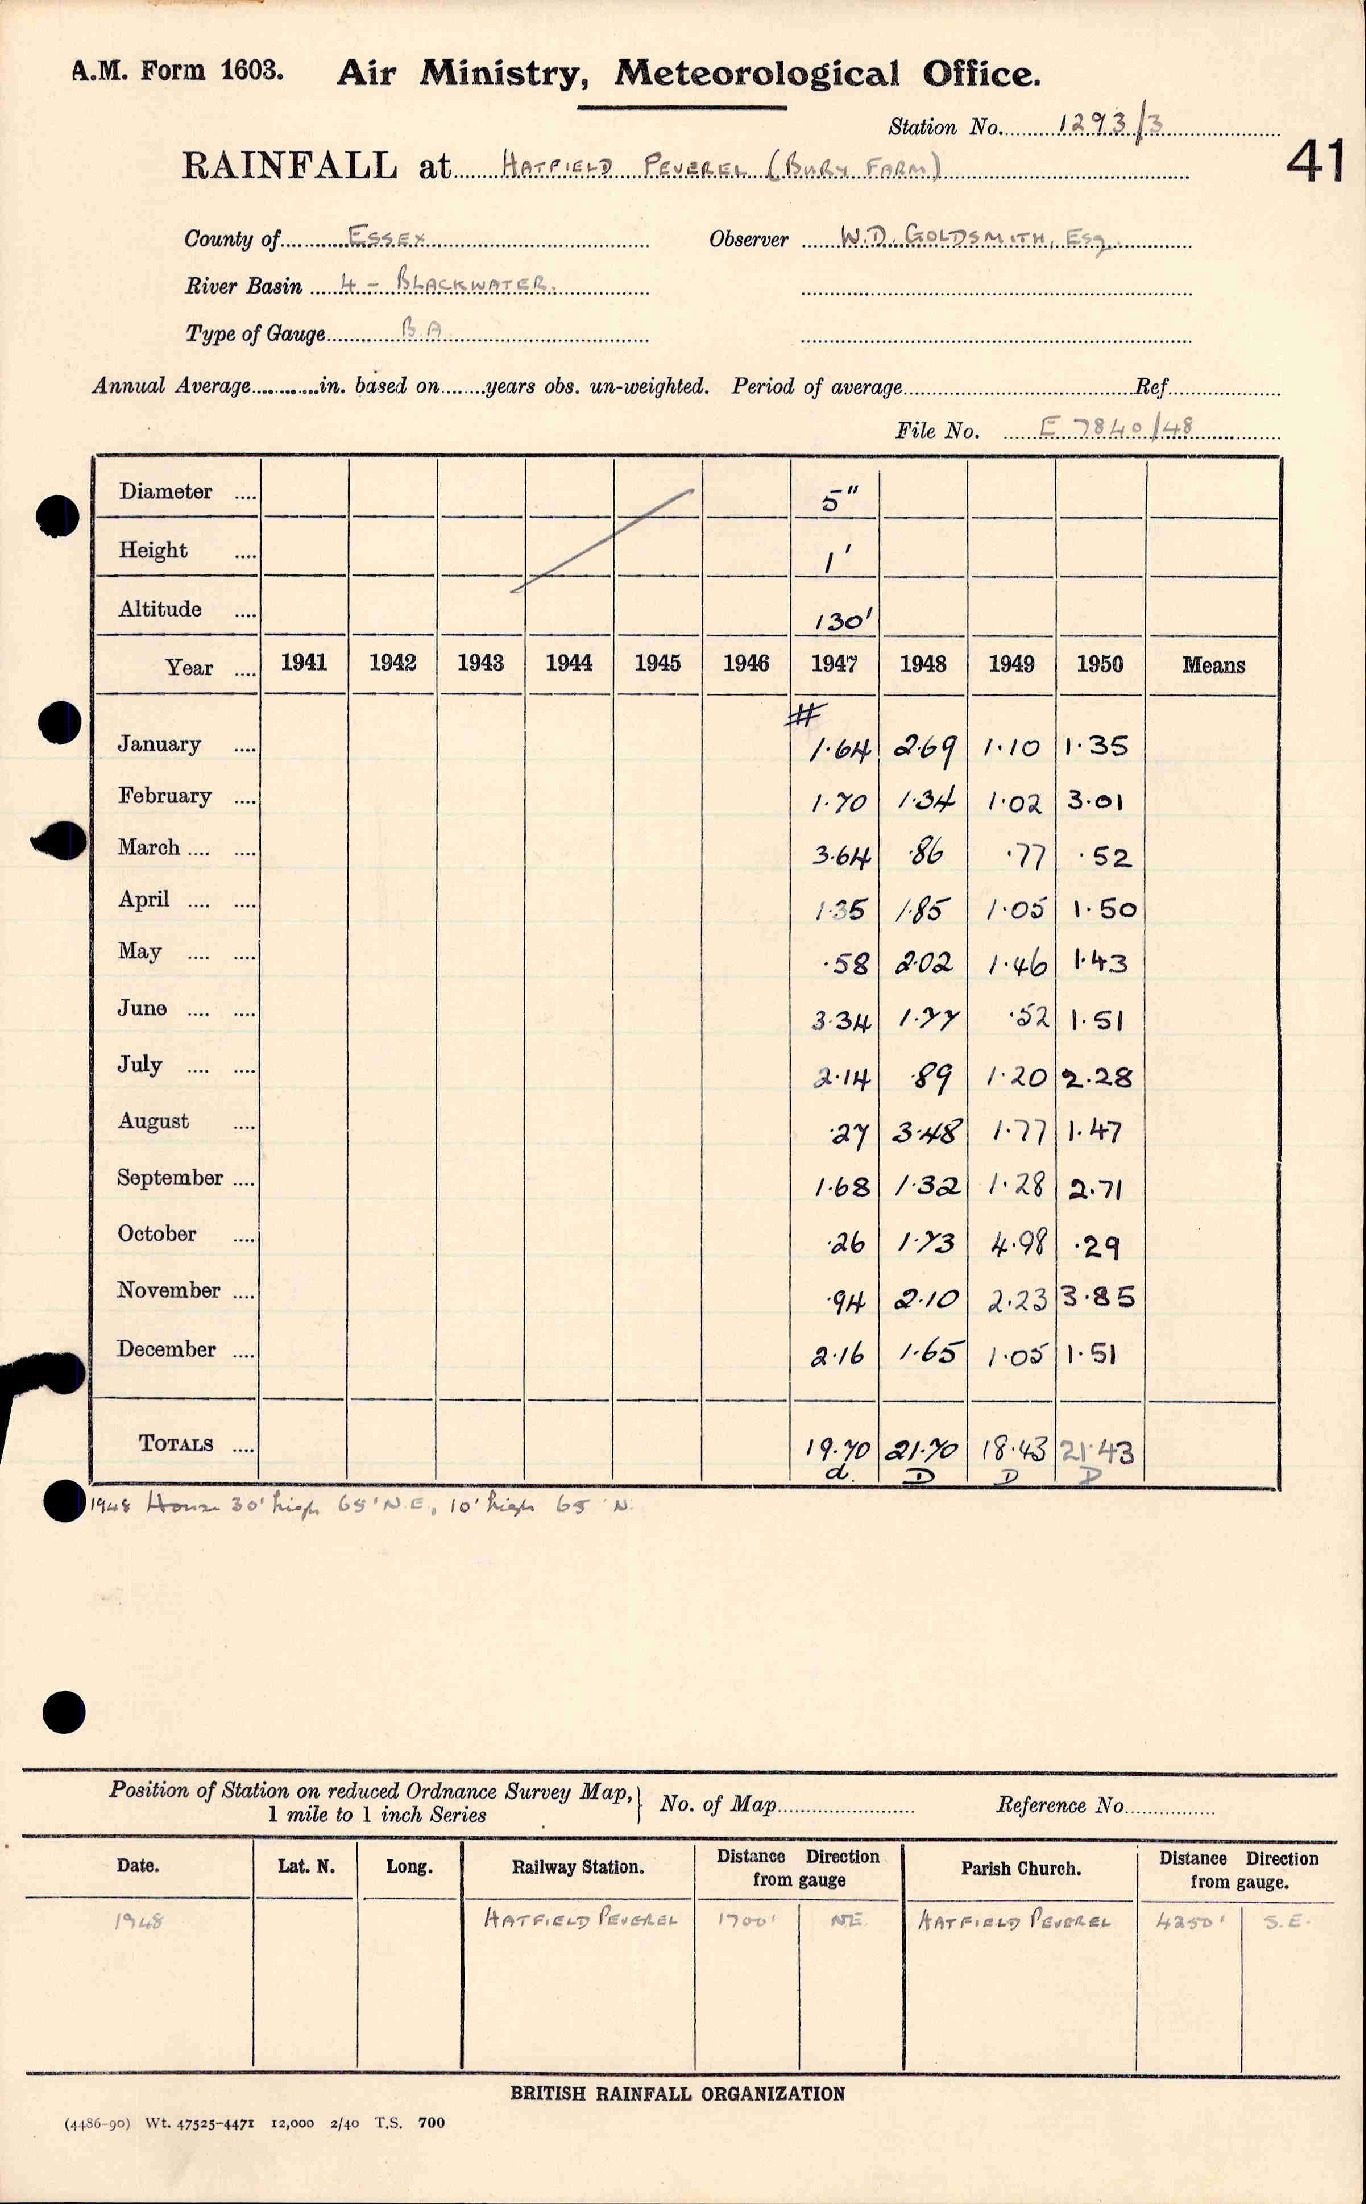 A.M. Form 1603. Air Ministry, Meteorological Office.
Station No. 1293/3
41
RAINFALL at HATFIELD PEVEREL (BURY FARM)
County of ESSEX Observer W.D. GOLDSMITH, Esq.
River Basin 4 - BLACKWATER.
Type of Gauge B.A.
Annual Average............in. based on........years obs. un-weighted. Period of average Ref.
File No. E 7840/48
Diameter .... 5"
Height .... 1'
Altitude .... 130'
Year .... 1941 1942 1943 1944 1945 1946 1947 1948 1949 1950 Means
#
January .... 1.64 2.69 1.10 1.35
February .... 1.70 1.34 1.02 3.01
March .... .... 3.64 .86 .77 .52
April .... .... 1.35 1.85 1.05 1.50
May .... .... .58 2.02 1.46 1.43
June .... .... 3.34 1.77 .52 1.51
July .... .... 2.14 .89 1.20 2.28
August .... .27 3.48 1.77 1.47
September .... 1.68 1.32 1.28 2.71
October .... .26 1.73 4.98 .29
November .... .94 2.10 2.23 3.85
December .... 2.16 1.65 1.05 1.51
TOTALS .... 19.70 21.70 18.43 21.43
d. D D D
1948 House 30' high 65' N.E., 10' high 65' N.
Position of Station on reduced Ordnance Survey Map,
1 mile to 1 inch Series
No. of Map Reference No.
Date. Lat. N. Long. Railway Station. Distance Direction from gauge Parish Church. Distance Direction from gauge.
1948 HATFIELD PEVEREL 1700' NE. HATFIELD PEVEREL 4250' S.E.
BRITISH RAINFALL ORGANIZATION
(4486-90) Wt. 47525-4471 12,000 2/40 T.S. 700